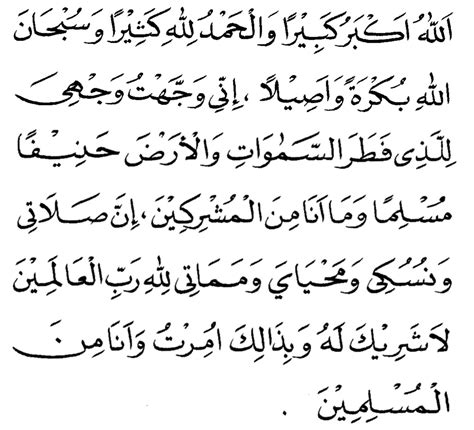 اَللهُ اَكْبَرُ كَبِيْرًا وَالْحَمْدُ لِلّٰهِ كَثِيْرًا وَسُبْحَانَ
اللهِ بُكْرَةً وَاَصِيْلًا ، اِنِّي وَجَّهْتُ وَجْهِيَ
لِلَّذِى فَطَرَ السَّمٰوَاتِ وَالْأَرْضَ حَنِيْفًا
مُسْلِمًا وَمَا اَنَا مِنَ الْمُشْرِكِيْنَ ، اِنَّ صَلَاتِى
وَنُسُكِى وَمَحْيَايَ وَمَمَاتِى لِلّٰهِ رَبِّ الْعَالَمِيْنَ
لَاشَرِيْكَ لَهُ وَبِذَالِكَ اُمِرْتُ وَاَنَا مِنَ
الْمُسْلِمِيْنَ .